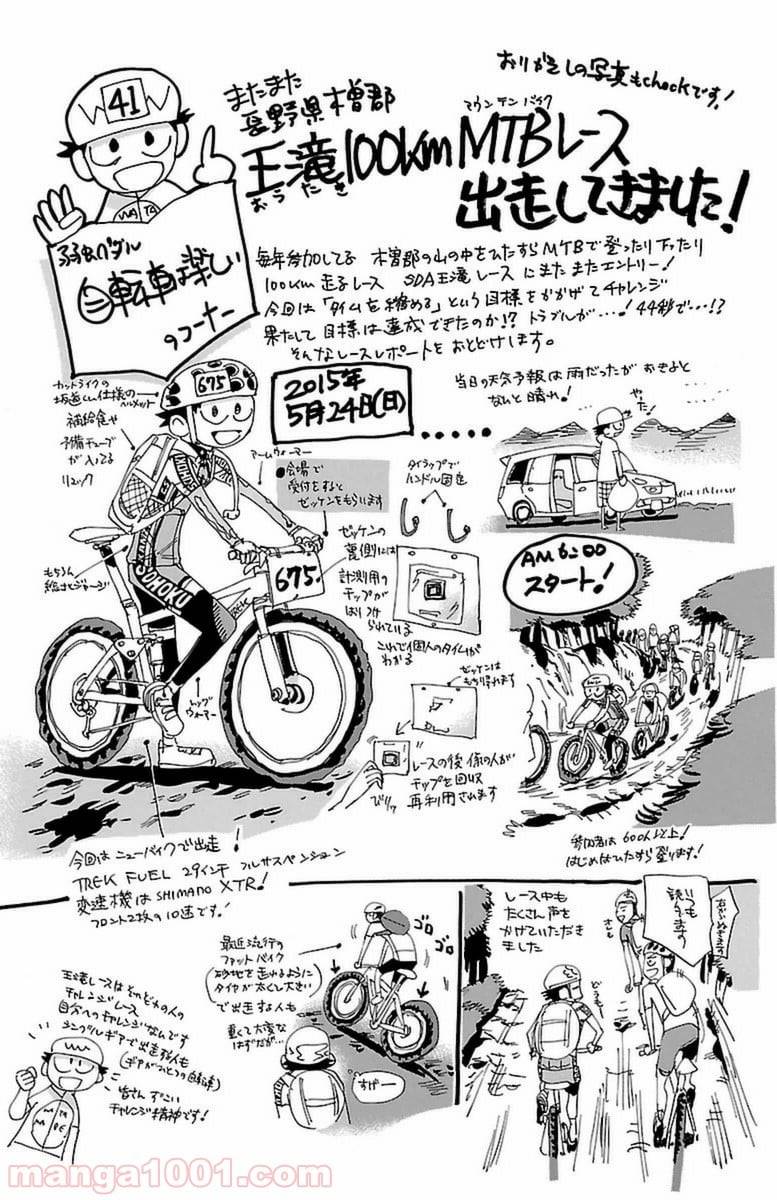 おりがえしの写真もcheckです!
またまた
長野県木曽郡
王滝100km MTBレース
おうたき
マウンテンバイク
出走してきました!
41
WATA
弱虫ペダル
自転車は楽しい
のコーナー
毎年参加してる 木曽郡の山の中をひたすらMTBで登ったり下ったり
100km走るレース SDA王滝レースにまたまたエントリー!
今回は「タイムを縮める」という目標をかかげてチャレンジ
果たして目標は達成できたのか!? トラブルが…! 44秒で…!?
そんなレースレポートをおとどけします。
2015年
5月24日(日)
......
カットライクの
坂道くん仕様の
ヘルメット
675
補給食や
予備チューブ
が入ってる
リュック
アームウォーマー
もちろん
総北ジャージ
SOHOKU
TREK
675
レッグ
ウォーマー
●会場で
受付をすると
ゼッケンをもらいます
タイラップで
ハンドル固定
ゼッケンの
裏側には
計測用の
チップが
はりつけ
られている
これで個人のタイムが
わかる
ゼッケンは
もち帰れます
びりッ
レースの後 係の人が
チップを回収
再利用されます
当日の天気予報は雨だったが おきると
なんと晴れ!
やった!
AM6:00
スタート!
参加者は600人以上!
はじめはひたすら登ります!
今回はニューバイクで出走
TREK FUEL 29インチ フルサスペンション
変速機はSHIMANO XTR!
フロント2枚の10速です!
王滝レースはそれぞれの人の
チャレンジレース
自分へのチャレンジなんです
シングルギアで出走する人も
(ギアがひとつの自転車)
皆さん すごい
チャレンジ精神です!
WATA
NABE
最近流行の
ファットバイク
(砂地を走れるように
タイヤが太くて大きい)
で出走する人も
重くて大変な
はずだが…
ゴロ
ゴロ
すげー
レース中も
たくさん声を
かけていただき
ました
いつも
読んでます
どうも